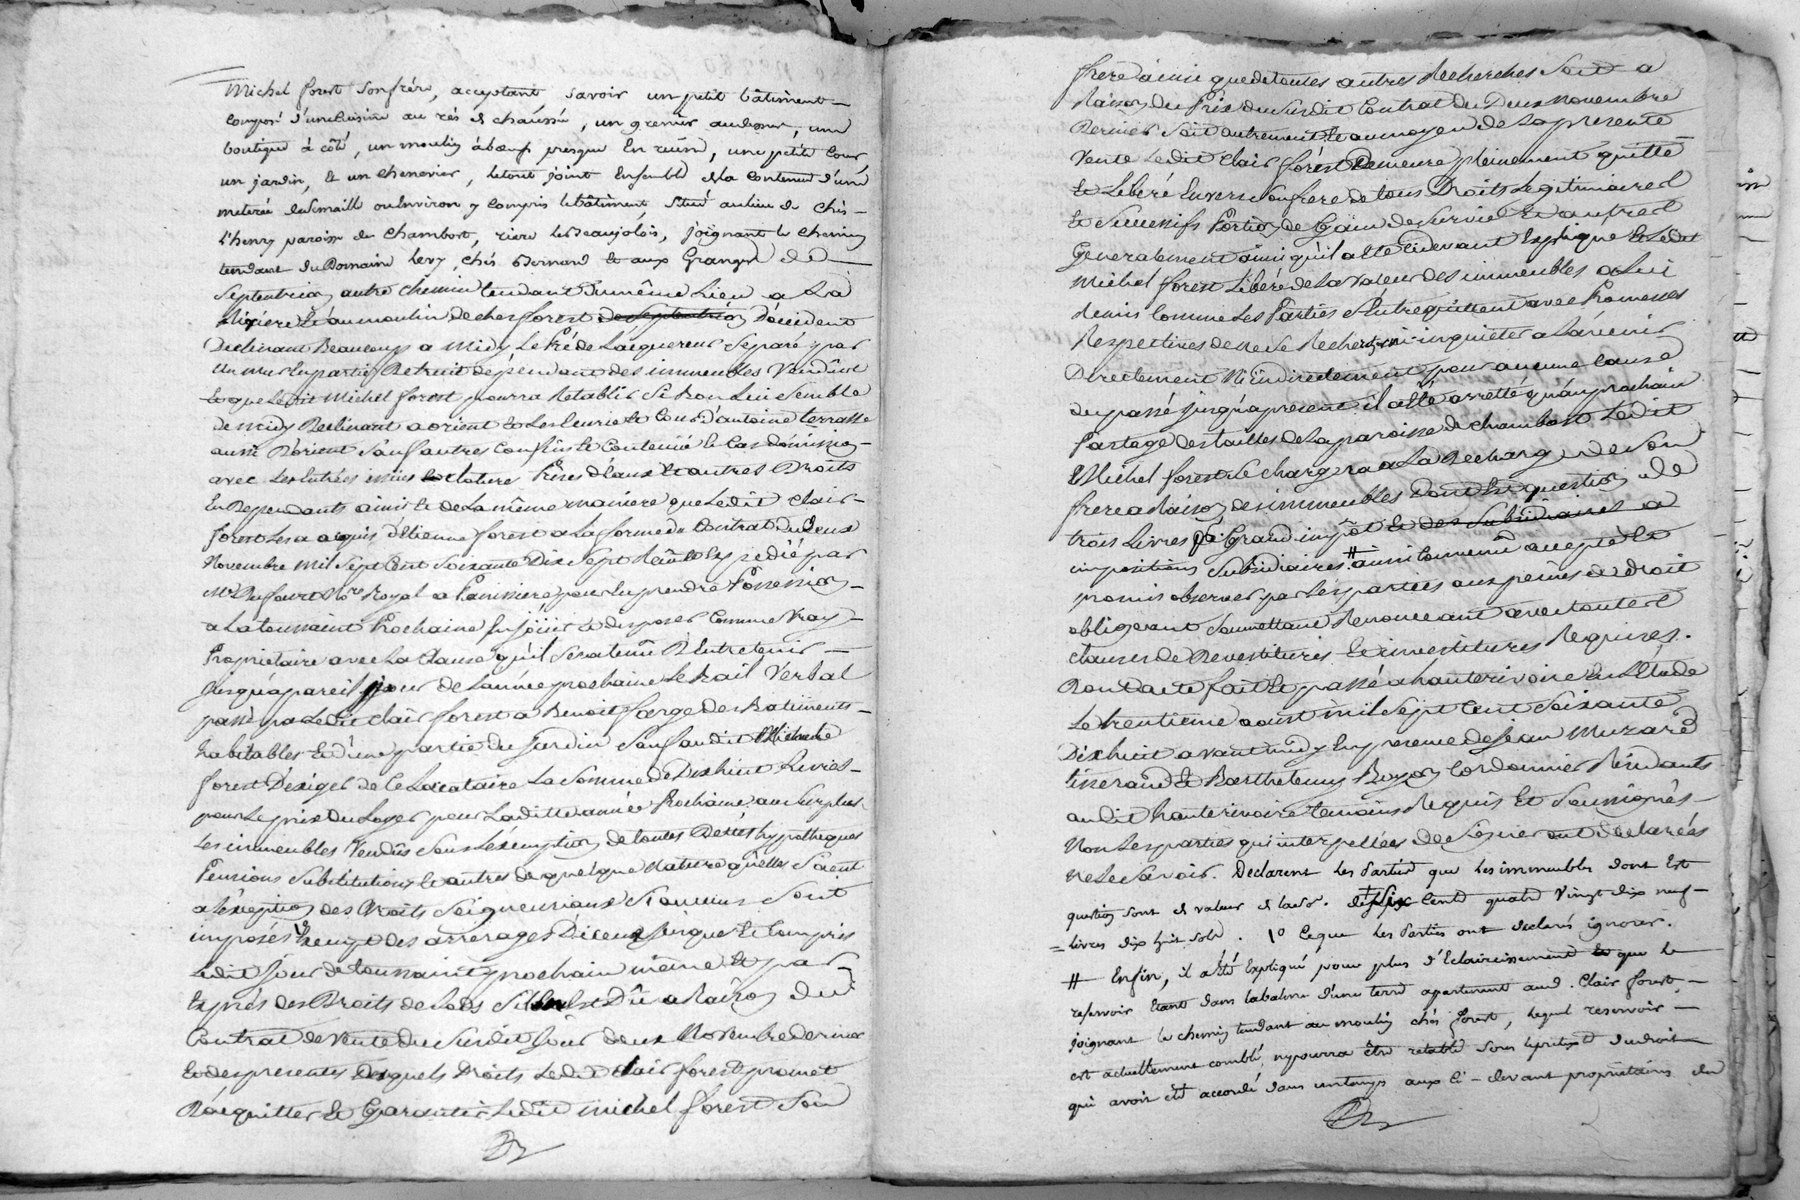 Michel forest son frère, acceptant savoir un petit bâtiment
composé d'une cuisine au rés de chaussée, un grenier audessus, une
boutique à côté, un moulin à bœufs presque en ruine, une petite cour
un jardin, et un chenevier, le tout joint ensemble de la contenue d'une
meterée de semaille ou environ y compris le bâtiment situé au lieu de chés
l'henry paroisse de chambost, riere le Beaujolois, joignant le chemin
tendant du Domaine levy, chés Bernard et aux Granges de
septentrion autre chemin tendant du même Lieu a La
et au moulin de ches forest de septentrion D'occident
Declinant Beaucoup a midy Le Pré de L'acquereur separé par
un mur en partie Detruit dépendant des immeubles Vendus
et que Ledit Michel forest pourra Rétablir Si Bon Lui Semble
De midy Declinant a orient et Les Ecurie et Cour d'antoine terrasse
aussi D'orient Sauf autres Confins et Contenue Le Cas
avec Les Entrées issües cloture Prises d'eaux et autres Droits
En Dependants ainsi et de La même maniere que Ledit Clair
forest Les a acquis d'Etienne forest a La forme du Contrat du Deux
Novembre mil Sept Cent Soixante Dix Sept Reçu et Expedié par
Me Dufour Nore Royal a Panissiere pour En prendre Possession
a La toussaint Prochaine En joüir et disposer Comme Vray
Proprietaire avec La Clause qu'il Sera tenu D'Entretenir
jusqu'a pareil jour de L'année prochaine Le Bail Verbal
passé par Ledit Clair forest a Benoit farge des Batiments
habitables et d'une partie du jardin Sauf audit Michel
forest D'exiger de Ce Locataire La Somme de Dixhuit Livres
pour Le prix du Loyer pour Laditte année Prochaine au Surplus
Les immeubles Vendus Sous L'exemption de toutes Dettes hypotheques
Pensions Substitutions et autres de quelque Nature qu'elles Soient
a L'exception des Droits Seigneuriaux Et Sont
imposés Exempt des arrerages D'iceux jusques et Compris
Ledit jour de toussaint prochain même et par
Exprés des Droits de Lods Dû a Raison du
Contrat de Vente du Susdit jour deux Novembre dernier
Et des presentes desquels Droits Ledit Clair forest promet
D'acquitter et Garantir Ledit michel forest Son
frere ainsi que de toutes autres Recherches Soit a
Raison du Prix du Susdit Contrat du Deux Novembre
Dernier Soit autrement et au moyen de La presente
Vente Ledit Clair forest Demeure pleinement quitte
et Libéré Envers Son frere de tous Droits Legitimaires
et Successifs Portion de Gain de Survie et autres
Generalement ainsi qu'il a eté Cidevant Expliqué et Ledit
Michel forest Libéré de La Valeur des immeubles a Lui
Remis Comme Les Parties S'Entrequittent avec Promesses
Respectives de ne Se Rechercher ni inquieter a L'avenir
Directement Ni indirectement pour aucune Cause
du passé jusqu'a present il a eté arretté qu'au prochain
Partage des tailles de La paroisse de Chambost Ledit
Michel forest Se Chargera a La Decharge de Son
frere a Raison des immeubles Dont Est question de
trois Livres pr. Grand impôt et des Subsidiaires a
impositions Subsidiaires # ainsi Convenu accepté et
promis observer par Les parties aux peines de droit
obligeant Soumettant Renonceant avec toutes
Clauses de Devestitures et investitures Requises.
Dont acte fait et passé a hauterivoire En L'Etude
Le trentieme aoust mil Sept Cent Soixante
Dixhuit avant midy En presence de jean Murard
tisserand et Barthelemy Cordonnier Residants
audit hauterivoire temoins Requis Et Soussignés
Non Les parties qui interpellées de Signer ont Declarées
Ne Le Savoir. Declarent les Parties que les immeubles dont est
question sont de valeur de cent quatre vingt dix neuf
livres dix huit sols. 1º Ce que les Parties ont declaré ignorer.
# Enfin, il a été Expliqué pour plus d'Eclaircissement que le
reservoir Etant dans la balme d'une terre apartenant aud. Clair forest,
joignant le chemin tendant au moulin chés forest, lequel reservoir
est actuellement comblé, ny pourra être retabli sous le pretexte du droit
qui avoit eté accordé dans un temps aux ci-devant proprietaires du